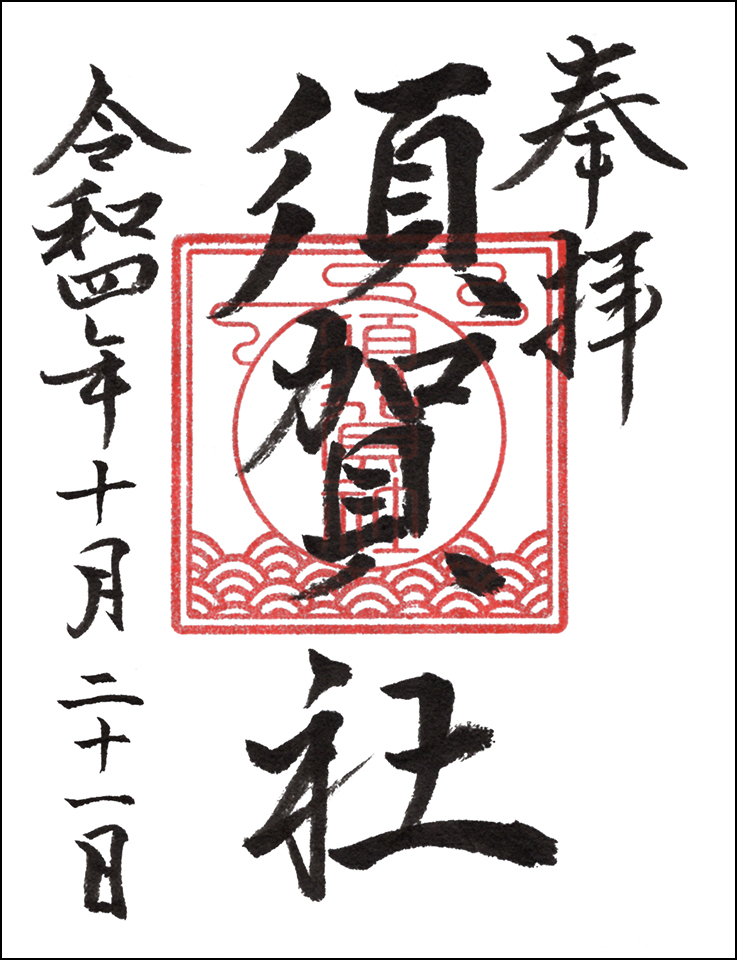 奉拝
須賀社
令和四年十月二十一日